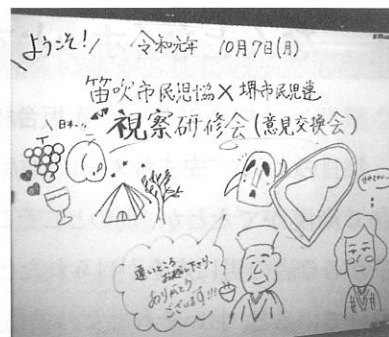 ようこそ! 令和元年 10月7日(月)
笛吹市民児協×堺市民児連
日本一
視察研修会(意見交換会)
遠いところ
お越し下さり、
ありがとう
ございます!!!